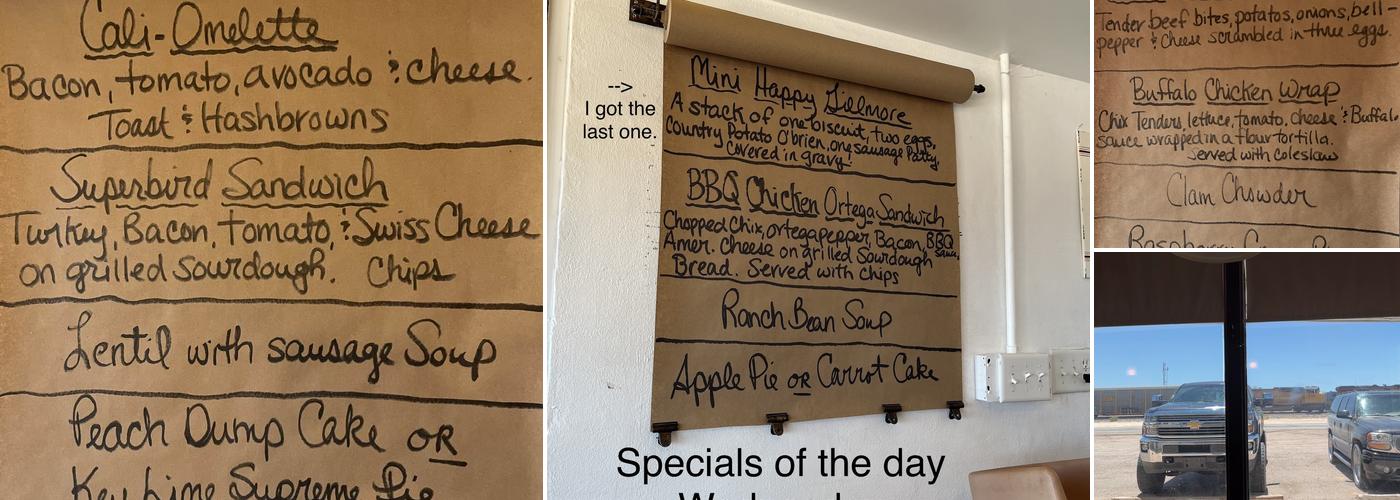 Cali-Omelette
Bacon, tomato, avocado & cheese.
Toast & Hashbrowns
Superbird Sandwich
Turkey, Bacon, tomato, & Swiss Cheese
on grilled sourdough. Chips
Lentil with sausage Soup
Peach Dump Cake OR
Key Lime Supreme Pie
-->
I got the
last one.
Mini Happy Gilmore
A stack of one biscuit, two eggs,
Country Potato O'brien, one sausage Patty,
Covered in gravy!
BBQ Chicken Ortega Sandwich
Chopped Chix, ortega pepper, Bacon, BBQ Sauce,
Amer. Cheese on grilled Sourdough
Bread. Served with Chips
Ranch Bean Soup
Apple Pie OR Carrot Cake
Specials of the day
Tender beef bites, potatos, onions, bell-
pepper & Cheese scrambled in three eggs.
Buffalo Chicken Wrap
Chix Tenders, lettuce, tomato, cheese & Buffalo
sauce wrapped in a flour tortilla.
Served with coleslaw
Clam Chowder
Raspberry